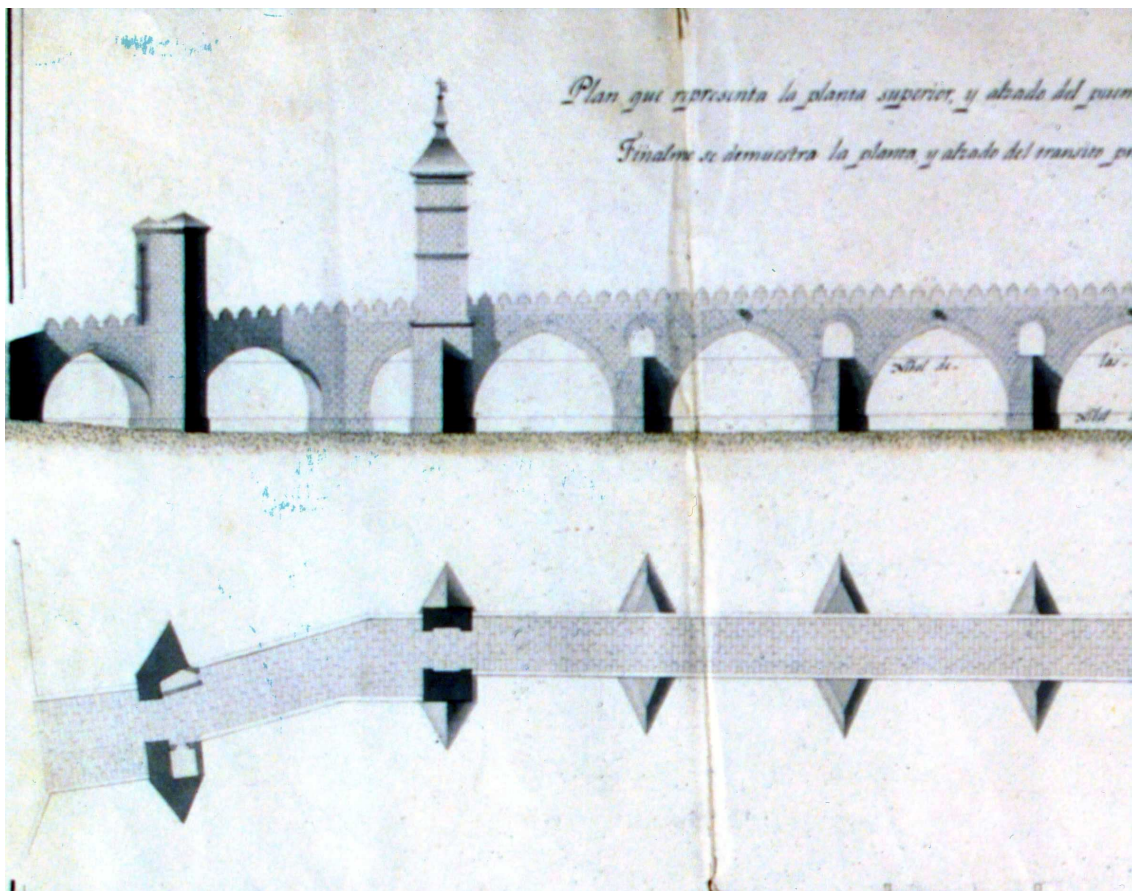 Plan que representa la planta superior, y alzado del puen
Finalme se demuestra la planta y alzado del transito pr
Nibel de-
las-
Nibel